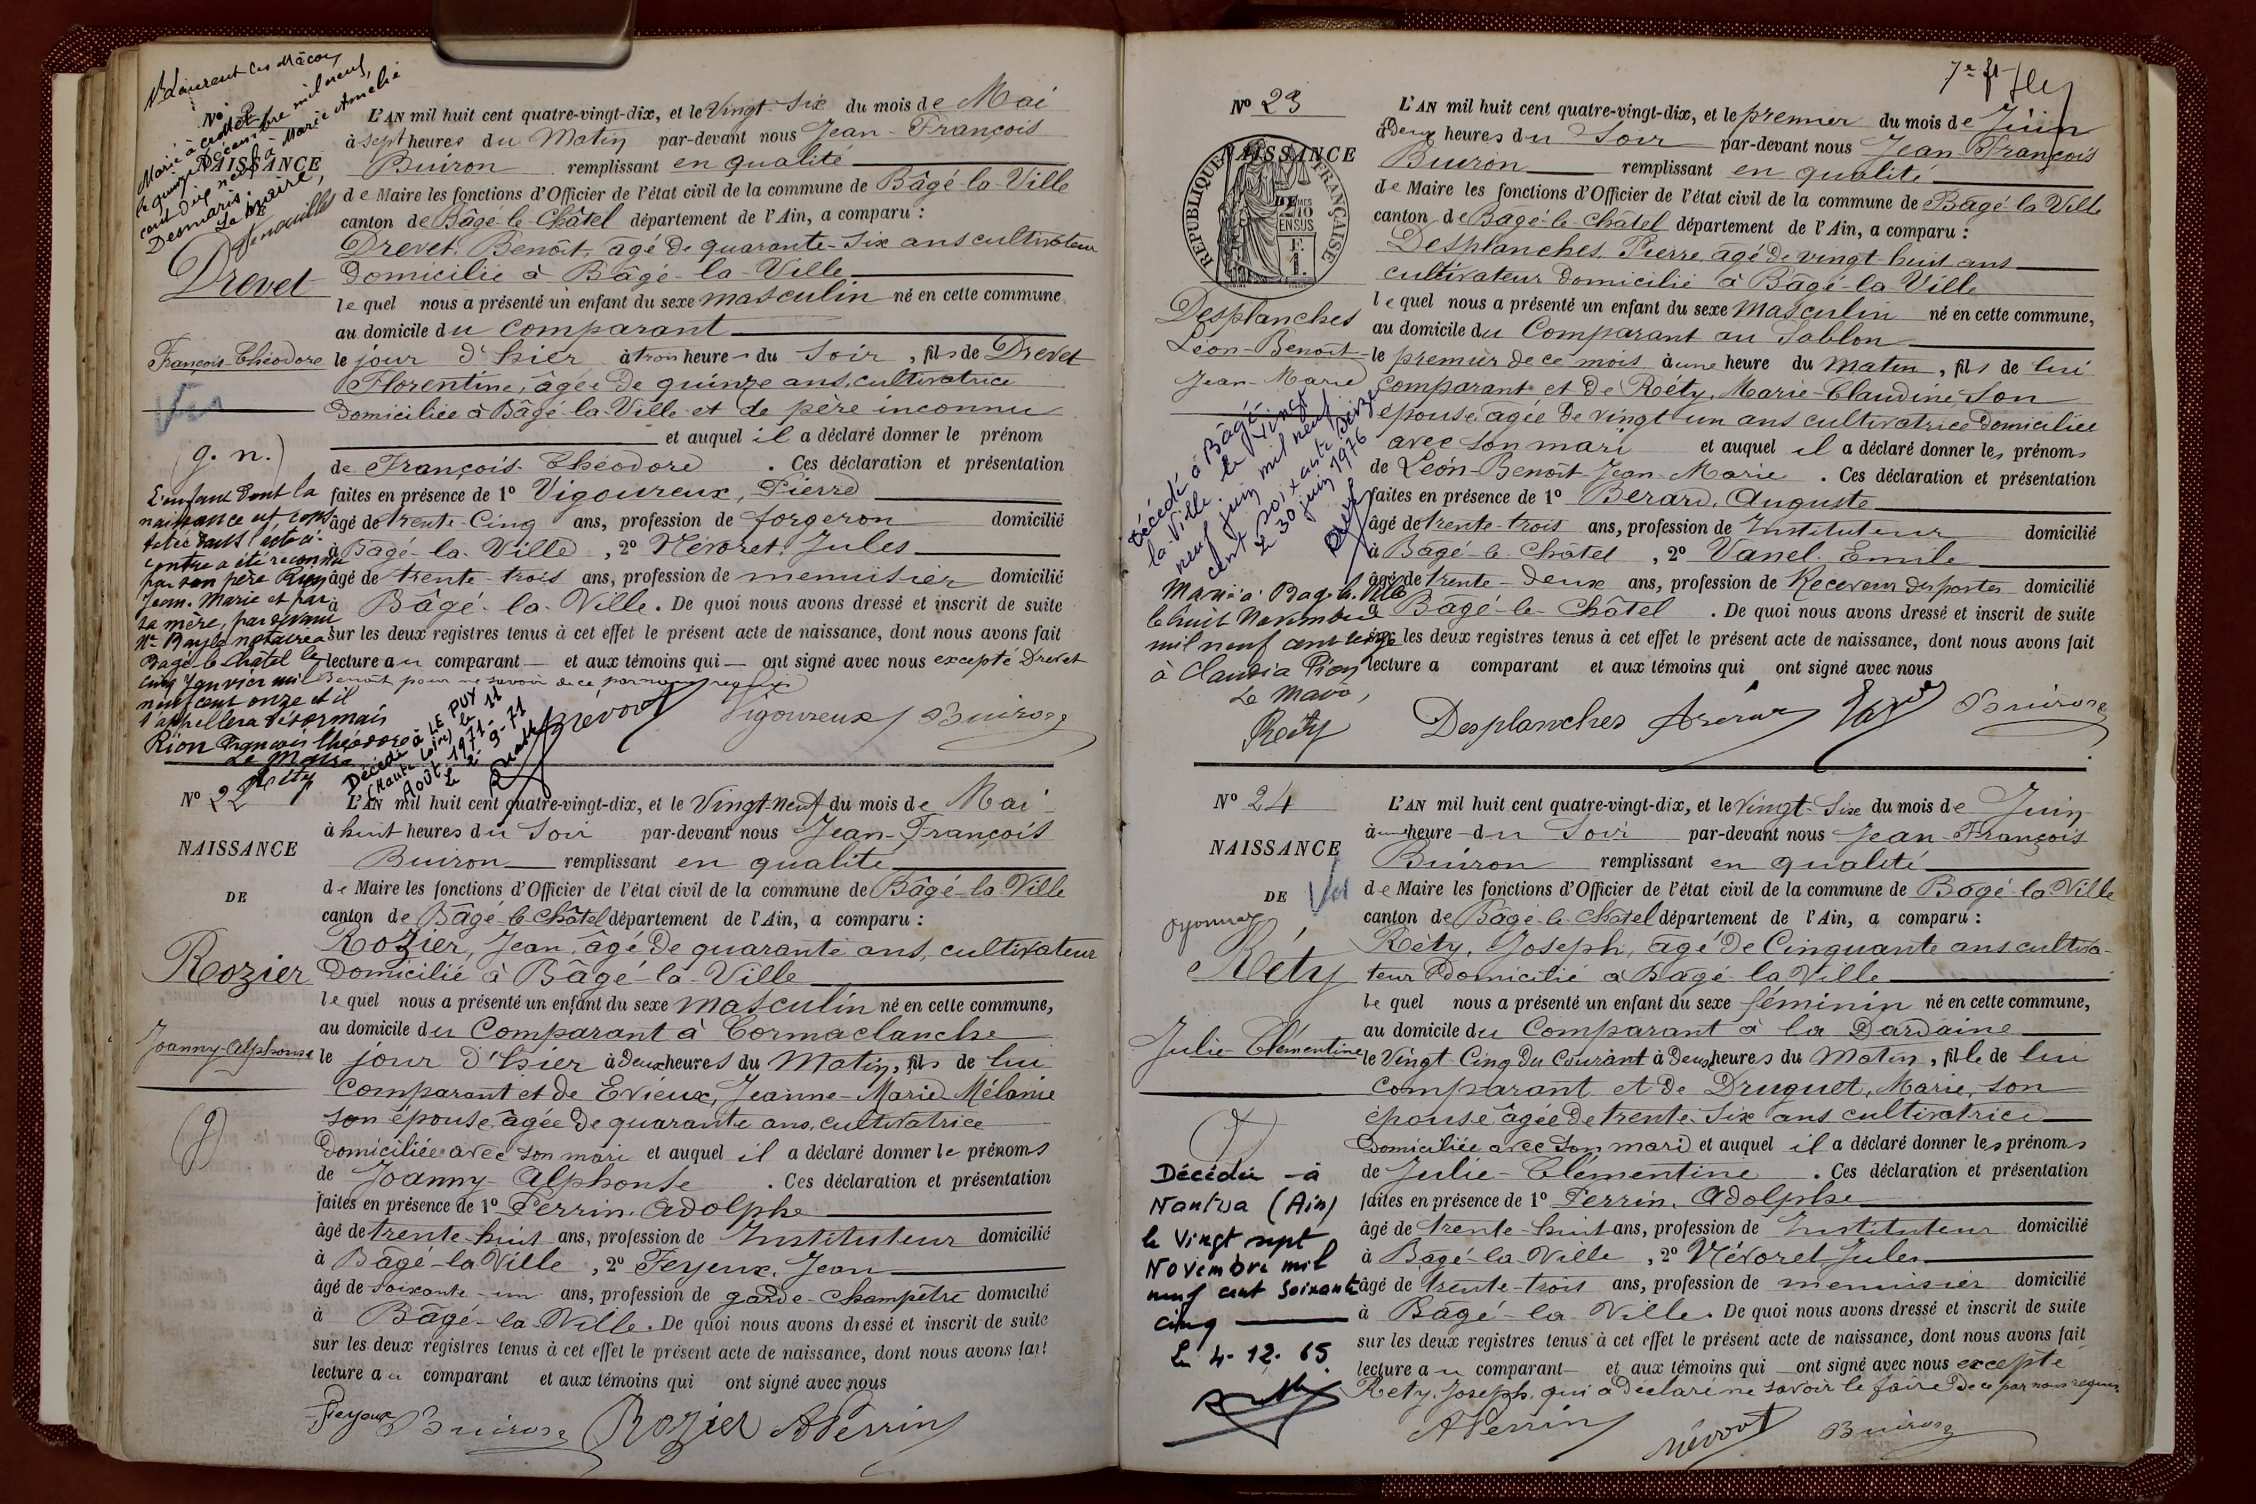 St Laurent les Mâcon
No
Marié à
le quinze Décembre mil neuf
cent dix neuf à Marie Amélie
Desmaris.
Le Maire,
NAISSANCE
DE
Drevet
François-Théodore
Vu
(g. n.)
L'enfant dont la
naissance est cons-
tatée dans l'acte ci-
contre a été reconnu
par son père Rion
Jean-Marie et par
sa mère, par devant
Me Bayle notaire à
Bâgé-le-Châtel le
cinq Janvier mil
neuf cent onze et il
s'appellera désormais
Rion François Théodore
Le Maire
Réty
L'AN mil huit cent quatre-vingt-dix, et le Vingt-Six du mois de Mai
à sept heures du Matin par-devant nous Jean-François
Buiron remplissant en qualité
de Maire les fonctions d'Officier de l'état civil de la commune de Bâgé-la-Ville
canton de Bâgé-le-Châtel département de l'Ain, a comparu :
Drevet, Benoît, âgé de quarante-six ans cultivateur
domicilié à Bâgé-la-Ville
lequel nous a présenté un enfant du sexe masculin né en cette commune
au domicile du comparant
le jour d'hier à trois heures du Soir, fils de Drevet
Florentine, âgée de quinze ans, cultivatrice
domiciliée à Bâgé-la-Ville et de père inconnu
et auquel il a déclaré donner le prénom
de François-Théodore. Ces déclaration et présentation
faites en présence de 1º Vigoureux, Pierre
âgé de trente-cinq ans, profession de forgeron domicilié
à Bâgé-la-Ville, 2º Névoret, Jules
âgé de trente-trois ans, profession de menuisier domicilié
à Bâgé-la-Ville. De quoi nous avons dressé et inscrit de suite
sur les deux registres tenus à cet effet le présent acte de naissance, dont nous avons fait
lecture au comparant et aux témoins qui ont signé avec nous excepté Drevet
Benoît pour ne savoir de ce par nous requis
Névoret Vigoureux Buiron
Décédé à LE PUY
(Haute Loire) le 11
Août 1971
Le 2-9-71
No 22
NAISSANCE
DE
Rozier
Joanny-Alphonse
(g)
L'AN mil huit cent quatre-vingt-dix, et le Vingt-neuf du mois de Mai
à huit heures du Soir par-devant nous Jean-François
Buiron remplissant en qualité
de Maire les fonctions d'Officier de l'état civil de la commune de Bâgé-la-Ville
canton de Bâgé-le-Châtel département de l'Ain, a comparu :
Rozier, Jean, âgé de quarante ans, cultivateur
domicilié à Bâgé-la-Ville
lequel nous a présenté un enfant du sexe masculin né en cette commune,
au domicile du Comparant à Cormaclanche
le jour d'hier à deux heures du Matin, fils de lui
comparant et de Evieux, Jeanne-Marie Mélanie
son épouse, âgée de quarante ans, cultivatrice
domiciliée avec son mari et auquel il a déclaré donner le prénoms
de Joanny-Alphonse. Ces déclaration et présentation
faites en présence de 1º Perrin, Adolphe
âgé de trente-huit ans, profession de Instituteur domicilié
à Bâgé-la-Ville, 2º Feyeux, Jean
âgé de soixante-un ans, profession de garde-champêtre domicilié
à Bâgé-la-Ville. De quoi nous avons dressé et inscrit de suite
sur les deux registres tenus à cet effet le présent acte de naissance, dont nous avons fait
lecture au comparant et aux témoins qui ont signé avec nous
Feyeux Buiron Rozier APerrin
No 23
NAISSANCE
RÉPUBLIQUE FRANÇAISE
DE
2/10
EN SUS
F.
1.
Desplanches
Léon-Benoît-
Jean-Marie
Décédé à Bâgé-
la-Ville le vingt
neuf juin mil neuf
cent soixante seize
Le 30 juin 1976
Marié à Bagé-la-Ville
le huit Novembre
mil neuf cent
à Claudia Pion
Le Maire,
Réty
L'AN mil huit cent quatre-vingt-dix, et le premier du mois de Juin
à deux heures du Soir par-devant nous Jean-François
Buiron remplissant en qualité
de Maire les fonctions d'Officier de l'état civil de la commune de Bâgé-la-Ville
canton de Bâgé-le-Châtel département de l'Ain, a comparu :
Desplanches, Pierre, âgé de vingt-huit ans
cultivateur domicilié à Bâgé-la-Ville
lequel nous a présenté un enfant du sexe Masculin né en cette commune,
au domicile du Comparant au Sablon
le premier de ce mois à une heure du Matin, fils de lui
comparant et de Réty, Marie-Claudine, son
épouse, âgée de vingt-un ans cultivatrice domiciliée
avec son mari et auquel il a déclaré donner les prénoms
de Léon-Benoît-Jean-Marie. Ces déclaration et présentation
faites en présence de 1º Bérard, Auguste
âgé de trente-trois ans, profession de Instituteur domicilié
à Bâgé-le-Châtel, 2º Vanel, Emile
âgé de trente-deux ans, profession de Receveur des postes domicilié
à Bâgé-le-Châtel. De quoi nous avons dressé et inscrit de suite
sur les deux registres tenus à cet effet le présent acte de naissance, dont nous avons fait
lecture a comparant et aux témoins qui ont signé avec nous
Desplanches Buiron
No 24
NAISSANCE
DE
Vu
Oyonnax
Réty
Julie-Clémentine
Décédée à
Nantua (Ain)
le vingt sept
Novembre mil
neuf cent soixante
cinq
Le 4.12.65
L'AN mil huit cent quatre-vingt-dix, et le vingt-six du mois de Juin
à une heure du Soir par-devant nous Jean-François
Buiron remplissant en qualité
de Maire les fonctions d'Officier de l'état civil de la commune de Bâgé-la-Ville
canton de Bâgé-le-Châtel département de l'Ain, a comparu :
Réty, Joseph, âgé de Cinquante ans cultiva-
teur domicilié à Bâgé-la-Ville
lequel nous a présenté un enfant du sexe féminin né en cette commune,
au domicile du Comparant à la Dardaine
le Vingt-Cinq du Courant à deux heures du Matin, fille de lui
comparant et de Druguet, Marie, son
épouse âgée de trente-six ans cultivatrice
domiciliée avec son mari et auquel il a déclaré donner les prénoms
de Julie-Clémentine. Ces déclaration et présentation
faites en présence de 1º Perrin, Adolphe
âgé de trente-huit ans, profession de Instituteur domicilié
à Bâgé-la-Ville, 2º Névoret, Jules
âgé de trente-trois ans, profession de menuisier domicilié
à Bâgé-la-Ville. De quoi nous avons dressé et inscrit de suite
sur les deux registres tenus à cet effet le présent acte de naissance, dont nous avons fait
lecture au comparant et aux témoins qui ont signé avec nous excepté
Réty, Joseph, qui a déclaré ne savoir le faire de ce par nous requis
APerrin Névoret Buiron